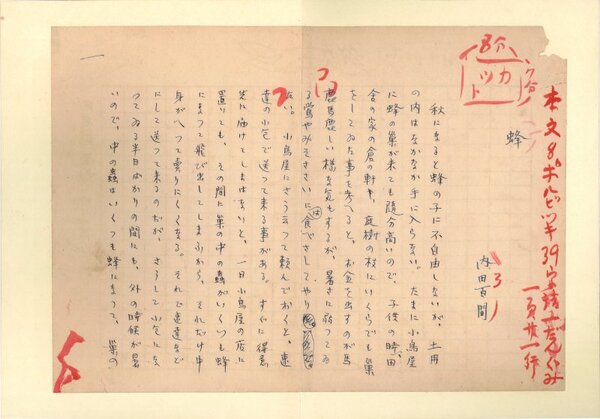 本文8ポ
一頁廿一行
カット
蜂
内田百間
秋になると蜂の子に不自由しないが、土用
の内はなかなか手に入らない。たまに小鳥屋
に蜂の巣が来ても随分高いので、子供の時田
舎の家の倉の軒や、庭樹の枝にいくらでも巣
をしてゐた事を考へると、お金を出すのが馬
鹿馬鹿しい様な気もするが、暑さに弱つてゐ
る鶯やみそさざいには食べさしてやり
ない。小鳥屋にさう云つて頼んでおくと、速
達の小包で送つて来る事がある。すぐに得意
先に届けてしまはないと、一日小鳥屋の店に
置いても、その間に巣の中の蟲がいくつも蜂
になつて飛び出してしまふから、それだけ中
身がへつて売りにくくなる。それで速達など
にして送つて来るのだが、さうして小包にな
つてゐる半日ばかりの間にも、外の時候が暑
いので、中の蟲はいくつも蜂になつて、巣の
一